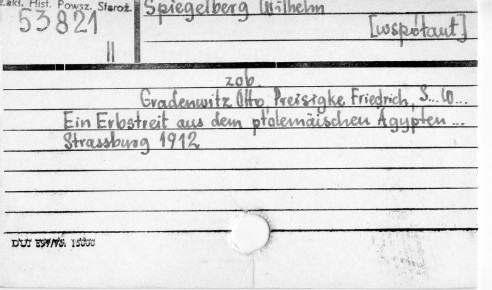 Zakł. Hist. Powsz. Staroż.
53821
II
Spiegelberg Wilhelm
[współaut]
zob.
Gradenwitz Otto, Preisigke Friedrich, S... W...
Ein Erbstreit aus dem ptolemäischen Ägypten ...
Strassburg 1912